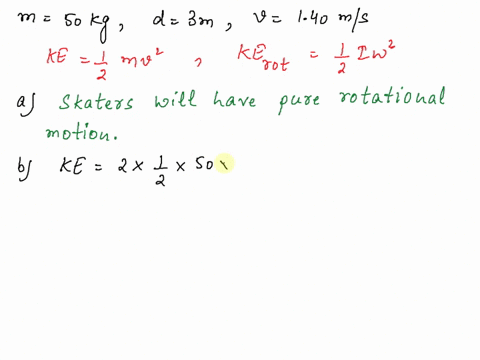 m = 50 kg, d = 3m, v = 1.40 m/s
KE = 1/2 mv², KE_rot = 1/2 Iω²
a) Skaters will have pure rotational
motion.
b) KE = 2 × 1/2 × 50 ×